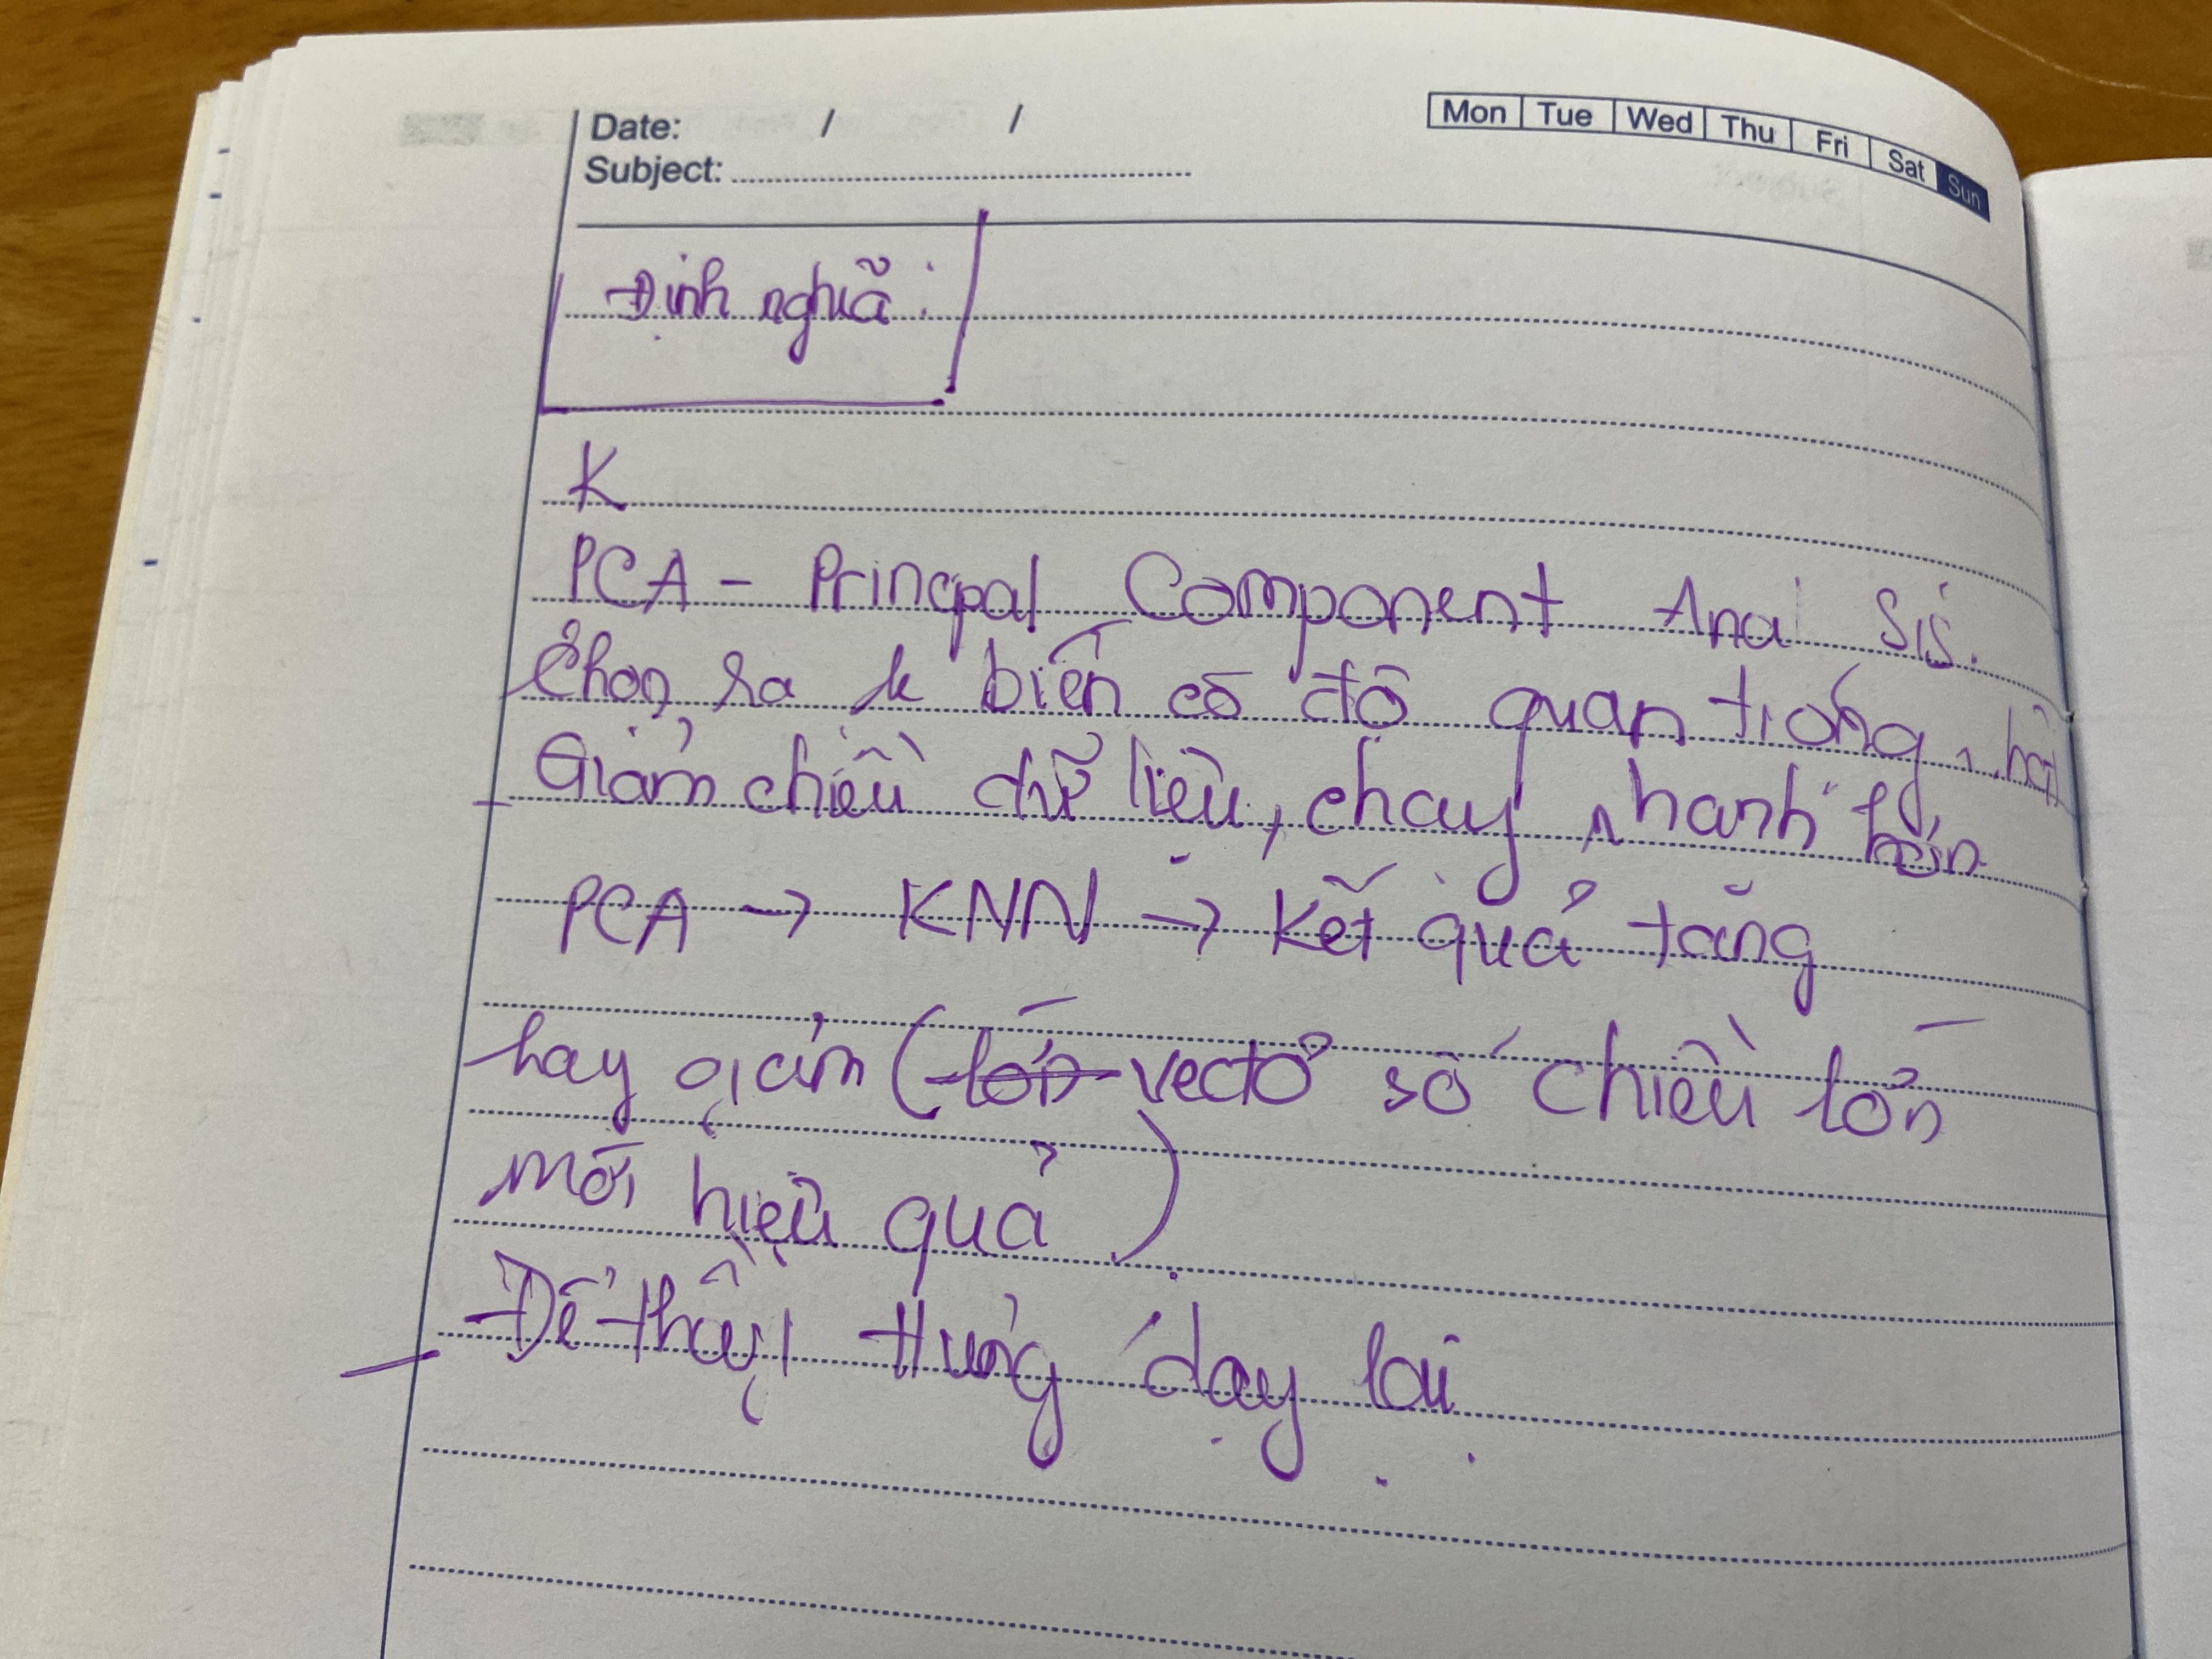 Date: / /
Mon Tue Wed Thu Fri Sat Sun
Subject:
Định nghĩa:
K
PCA - Principal Component Anal sis.
Chọn ra k biến có độ quan trọng nhất
Giảm chiều dữ liệu, chạy nhanh hơn
PCA → KNN → kết quả tăng
hay giảm ( vectơ số chiều lớn
mới hiệu quả )
Để thầy Hưng dạy lại